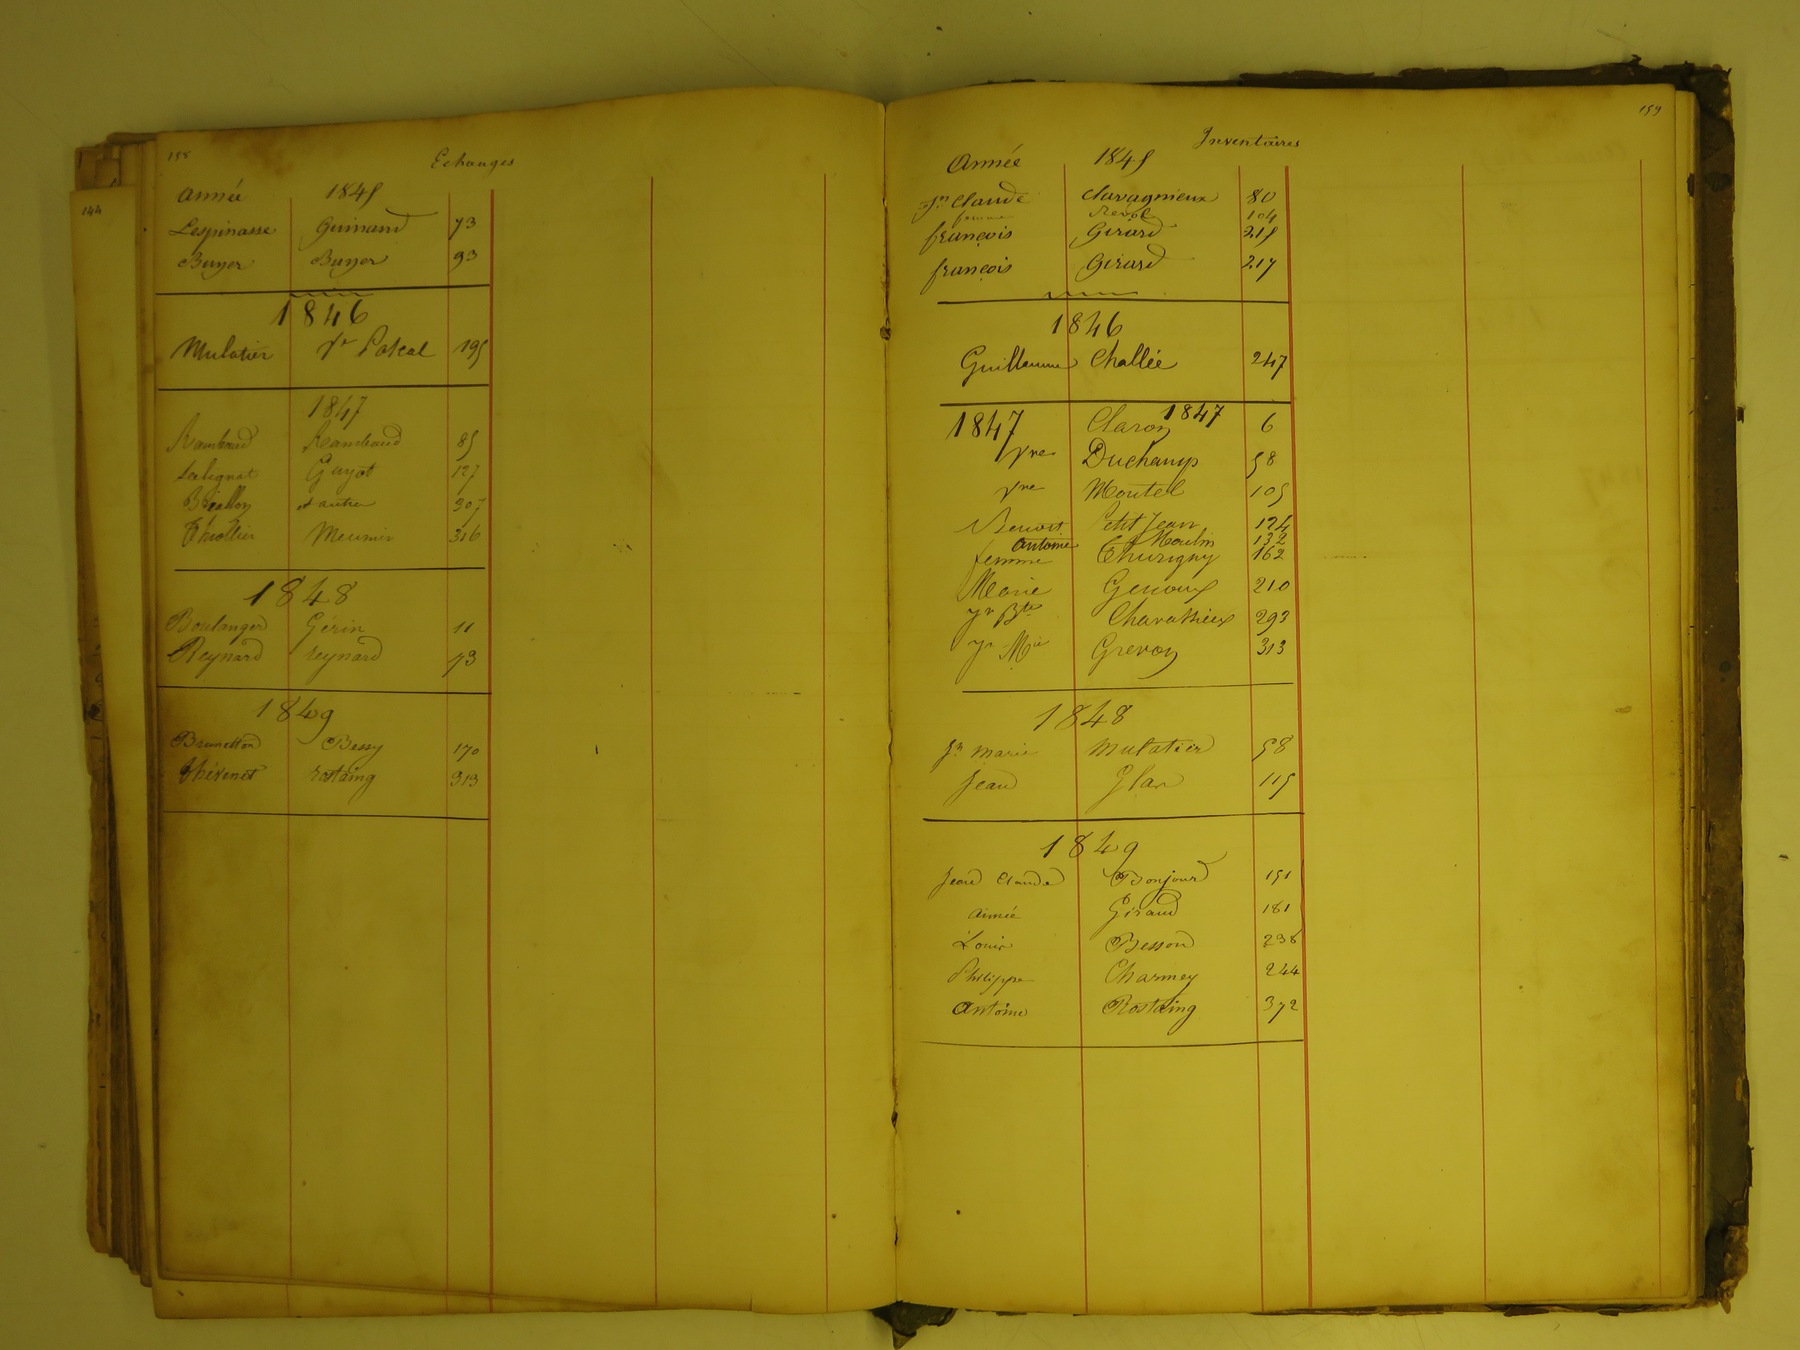 144
158
Echanges
année 1845
Lespinasse Guinand 73
Buyer Buyer 93
1846
Mulatier Pascal 195
1847
Rambaud Rambaud 85
Salignat Guyot 127
et autre 307
Thiollier Meunier 316
1848
Boulanger Gérin 11
Reynard reynard 73
1849
Bessy 170
thévenet rostaing 313
159
Inventaires
Année 1845
Jn Claude Clavagnieux 80
femme Revol 104
françois Girard 215
françois Girard 217
1846
Guillaume Challée 247
1847 Claron 1847 6
Vve Duchamp 58
Vve Montel 105
Benoit Petit Jean 124
Antoine Moulin 132
femme Thurigny 162
Marie Genoux 210
Jn Bte Charassieux 293
Jn Mie Grevon 313
1848
Jn Marie Mulatier 58
Jean Glas 115
1849
Jean Claude Bonjour 151
aimée Giraud 181
Louis Besson 238
Philippe Charmey 244
antoine Rostaing 372